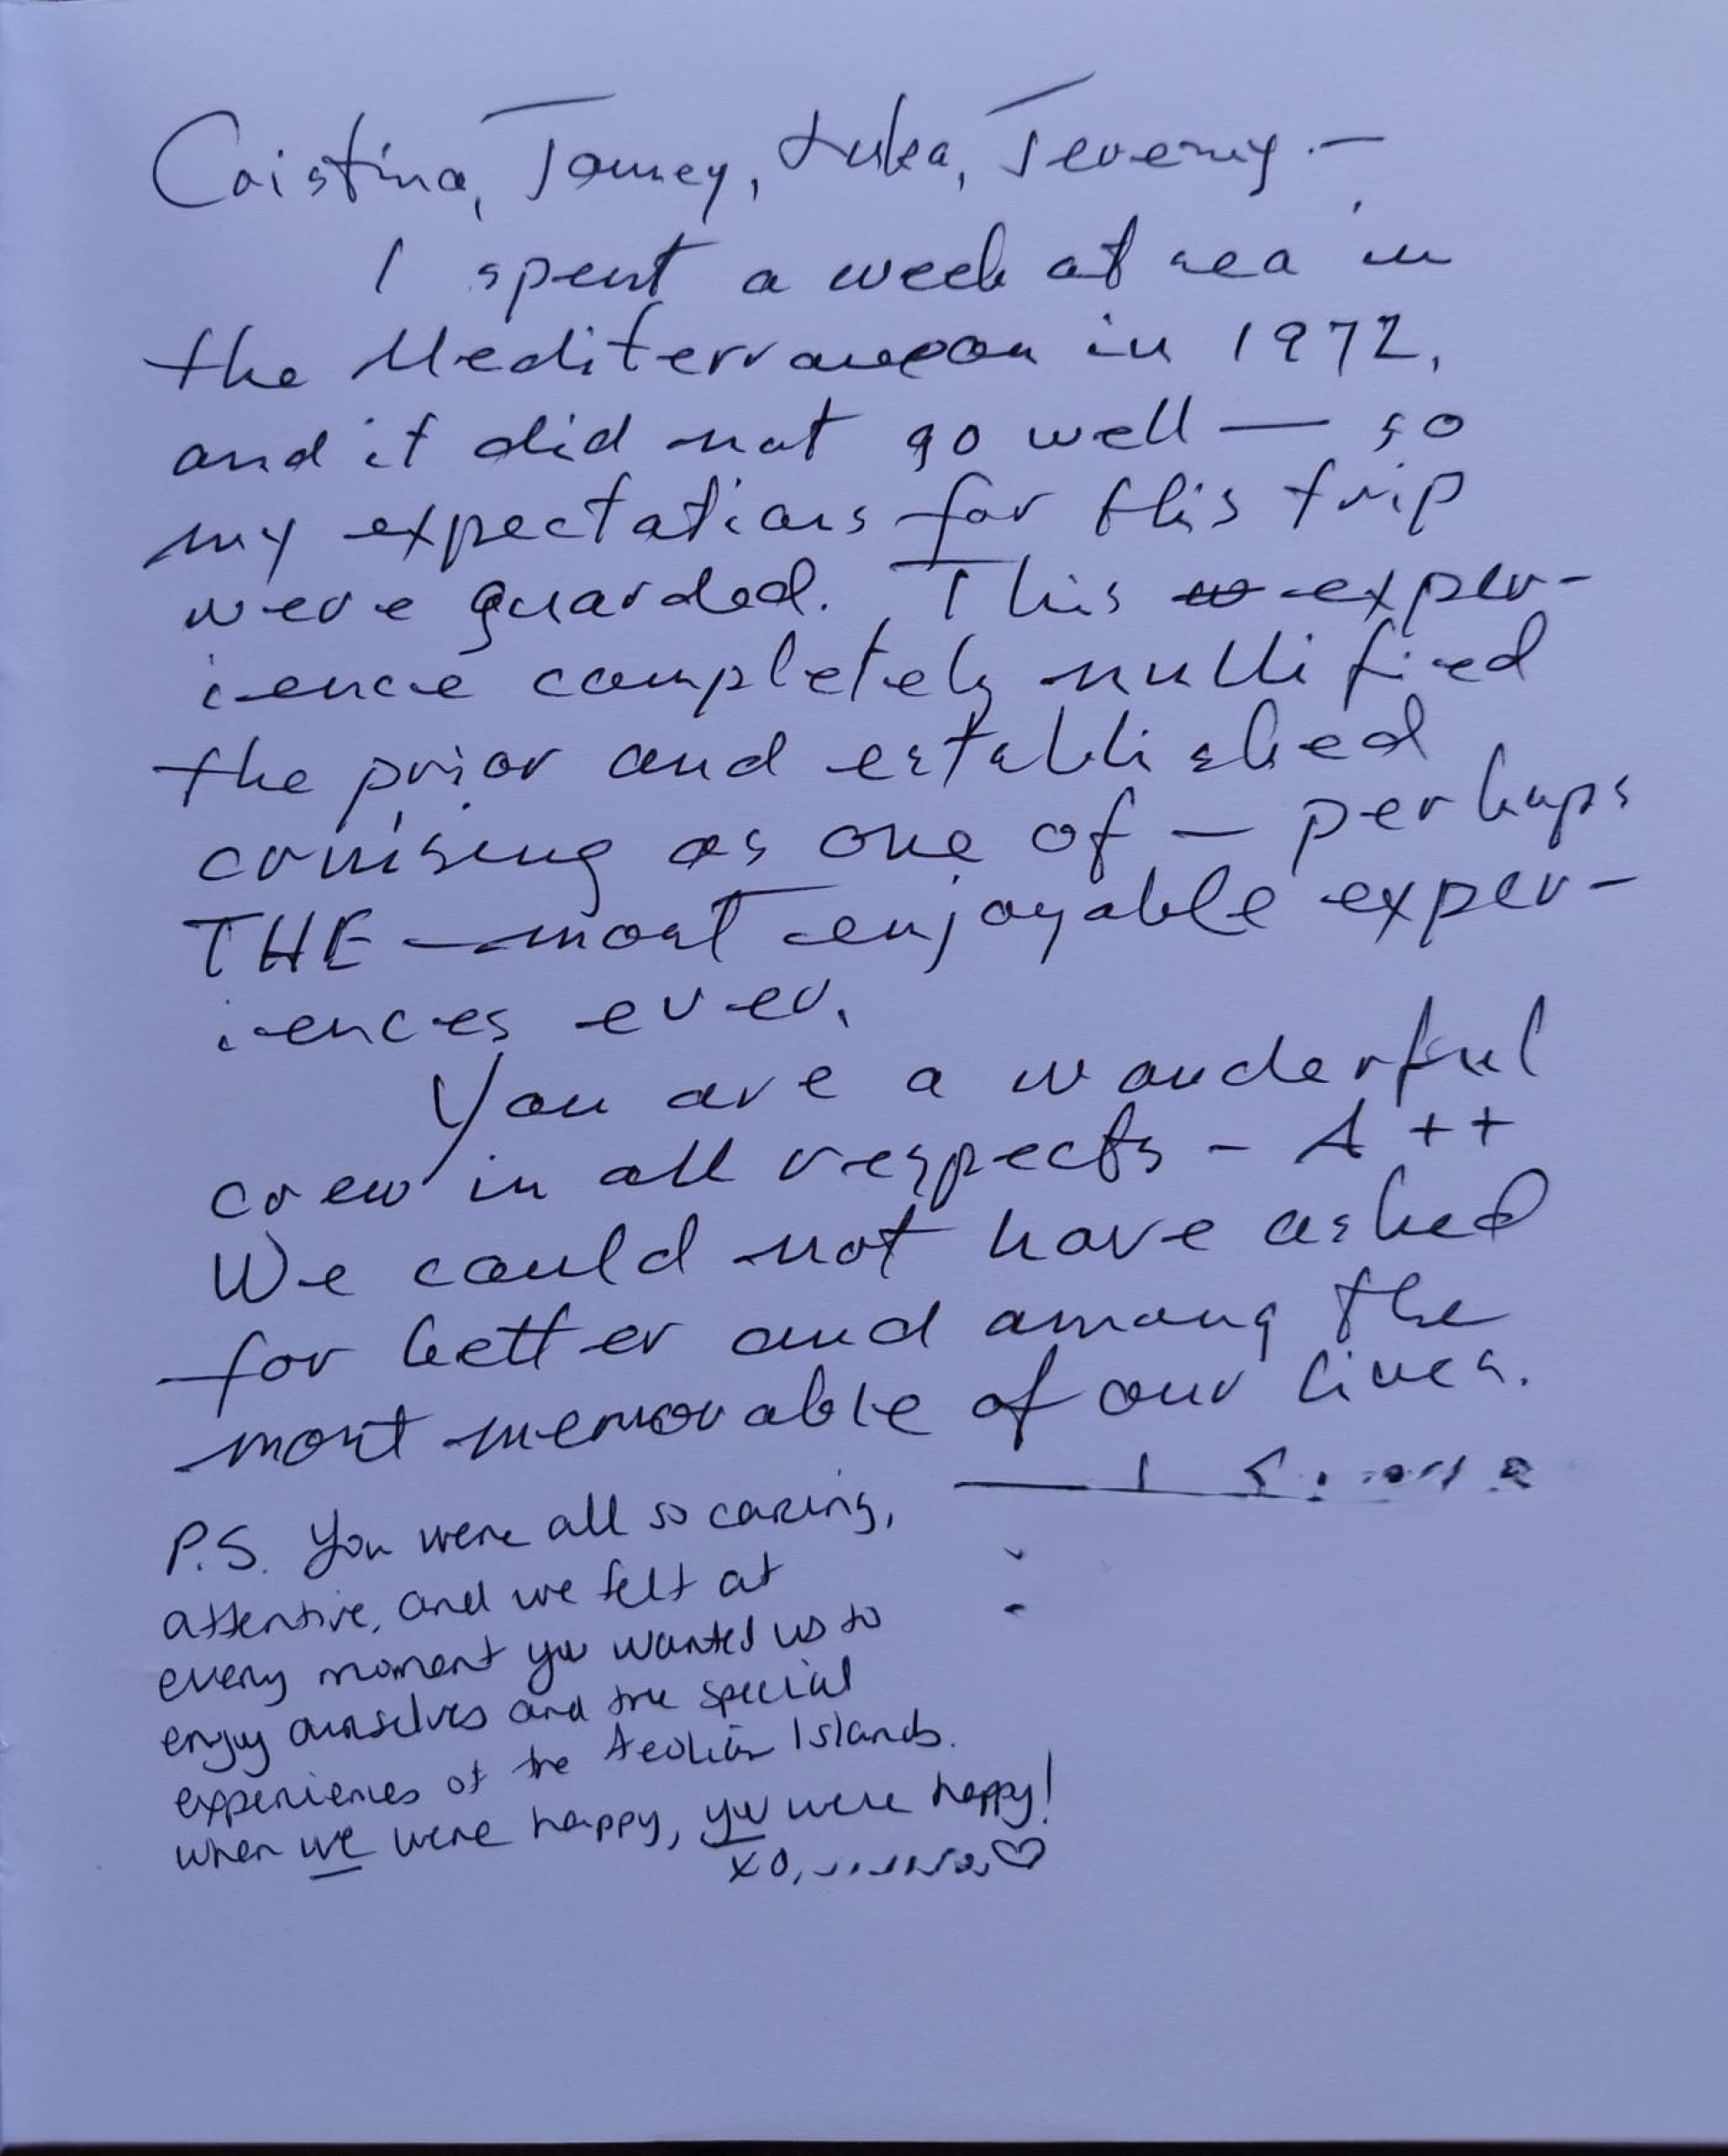 Cristina, Tommy, Luka, Jeremy -
I spent a week at sea in
the Mediterranean in 1972,
and it did not go well — so
my expectations for this trip
were guarded. This exper-
ience completely nullified
the prior and established
cruising as one of — perhaps
THE — most enjoyable exper-
iences ever.
You are a wonderful
crew in all respects - A++
We could not have asked
for better and among the
most memorable of our lives.
P.S. You were all so caring,
attentive, and we felt at
every moment you wanted us to
enjoy ourselves and the special
experiences of the Aeolian Islands.
When we were happy, you were happy!
XO, ♡